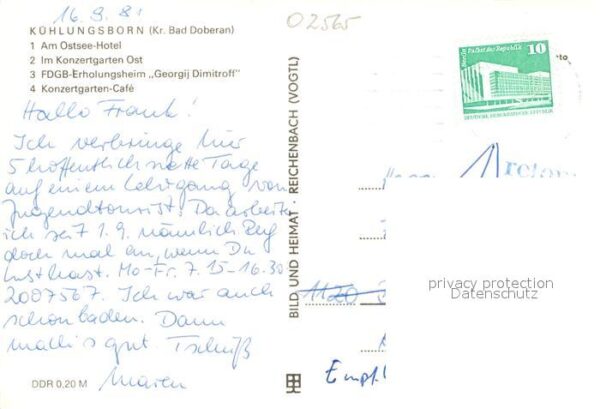 16.9.81
02565
KÜHLUNGSBORN (Kr. Bad Doberan)
1 Am Ostsee-Hotel
2 Im Konzertgarten Ost
3 FDGB-Erholungsheim „Georgij Dimitroff"
4 Konzertgarten-Café
Hallo Frank!
Ich verbringe hier
5 hoffentlich nette Tage
auf einem Lehrgang von
Jugendtourist. Da arbeite
ich seit 1.9. nämlich
doch mal an, wenn Du
Lust hast. Mo-Fr. 7.15-16.30
2007567. Ich war auch
schon baden. Dann
mach's gut. Tschüß
Maren
DDR 0,20 M
BILD UND HEIMAT · REICHENBACH (VOGTL)
Berlin Palast der Republik
10
DEUTSCHE DEMOKRATISCHE REPUBLIK
1120
privacy protection
Datenschutz
Empf.